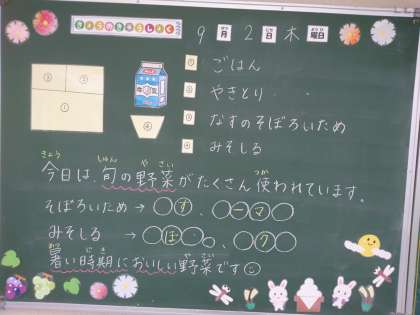 きょうのきゅうしょく
9月2日木曜日
① ごはん
② やきとり
③ なすのそぼろいため
④ みそしる
今日は、旬の野菜がたくさん使われています。
そぼろいため→○す、○ーマ○
みそしる →○ぼ○、○ク○
暑い時期においしい野菜です